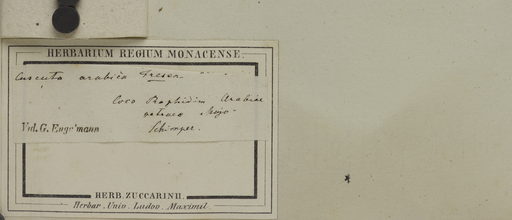 HERBARIUM REGIUM MONACENSE.
Cuscuta arabica Fresen.
Loco Raphidim Arabiae
petraea Majo
Schimper.
Vid. G. Engelmann
HERB. ZUCCARINII.
Herbar. Univ. Ludov. Maximil